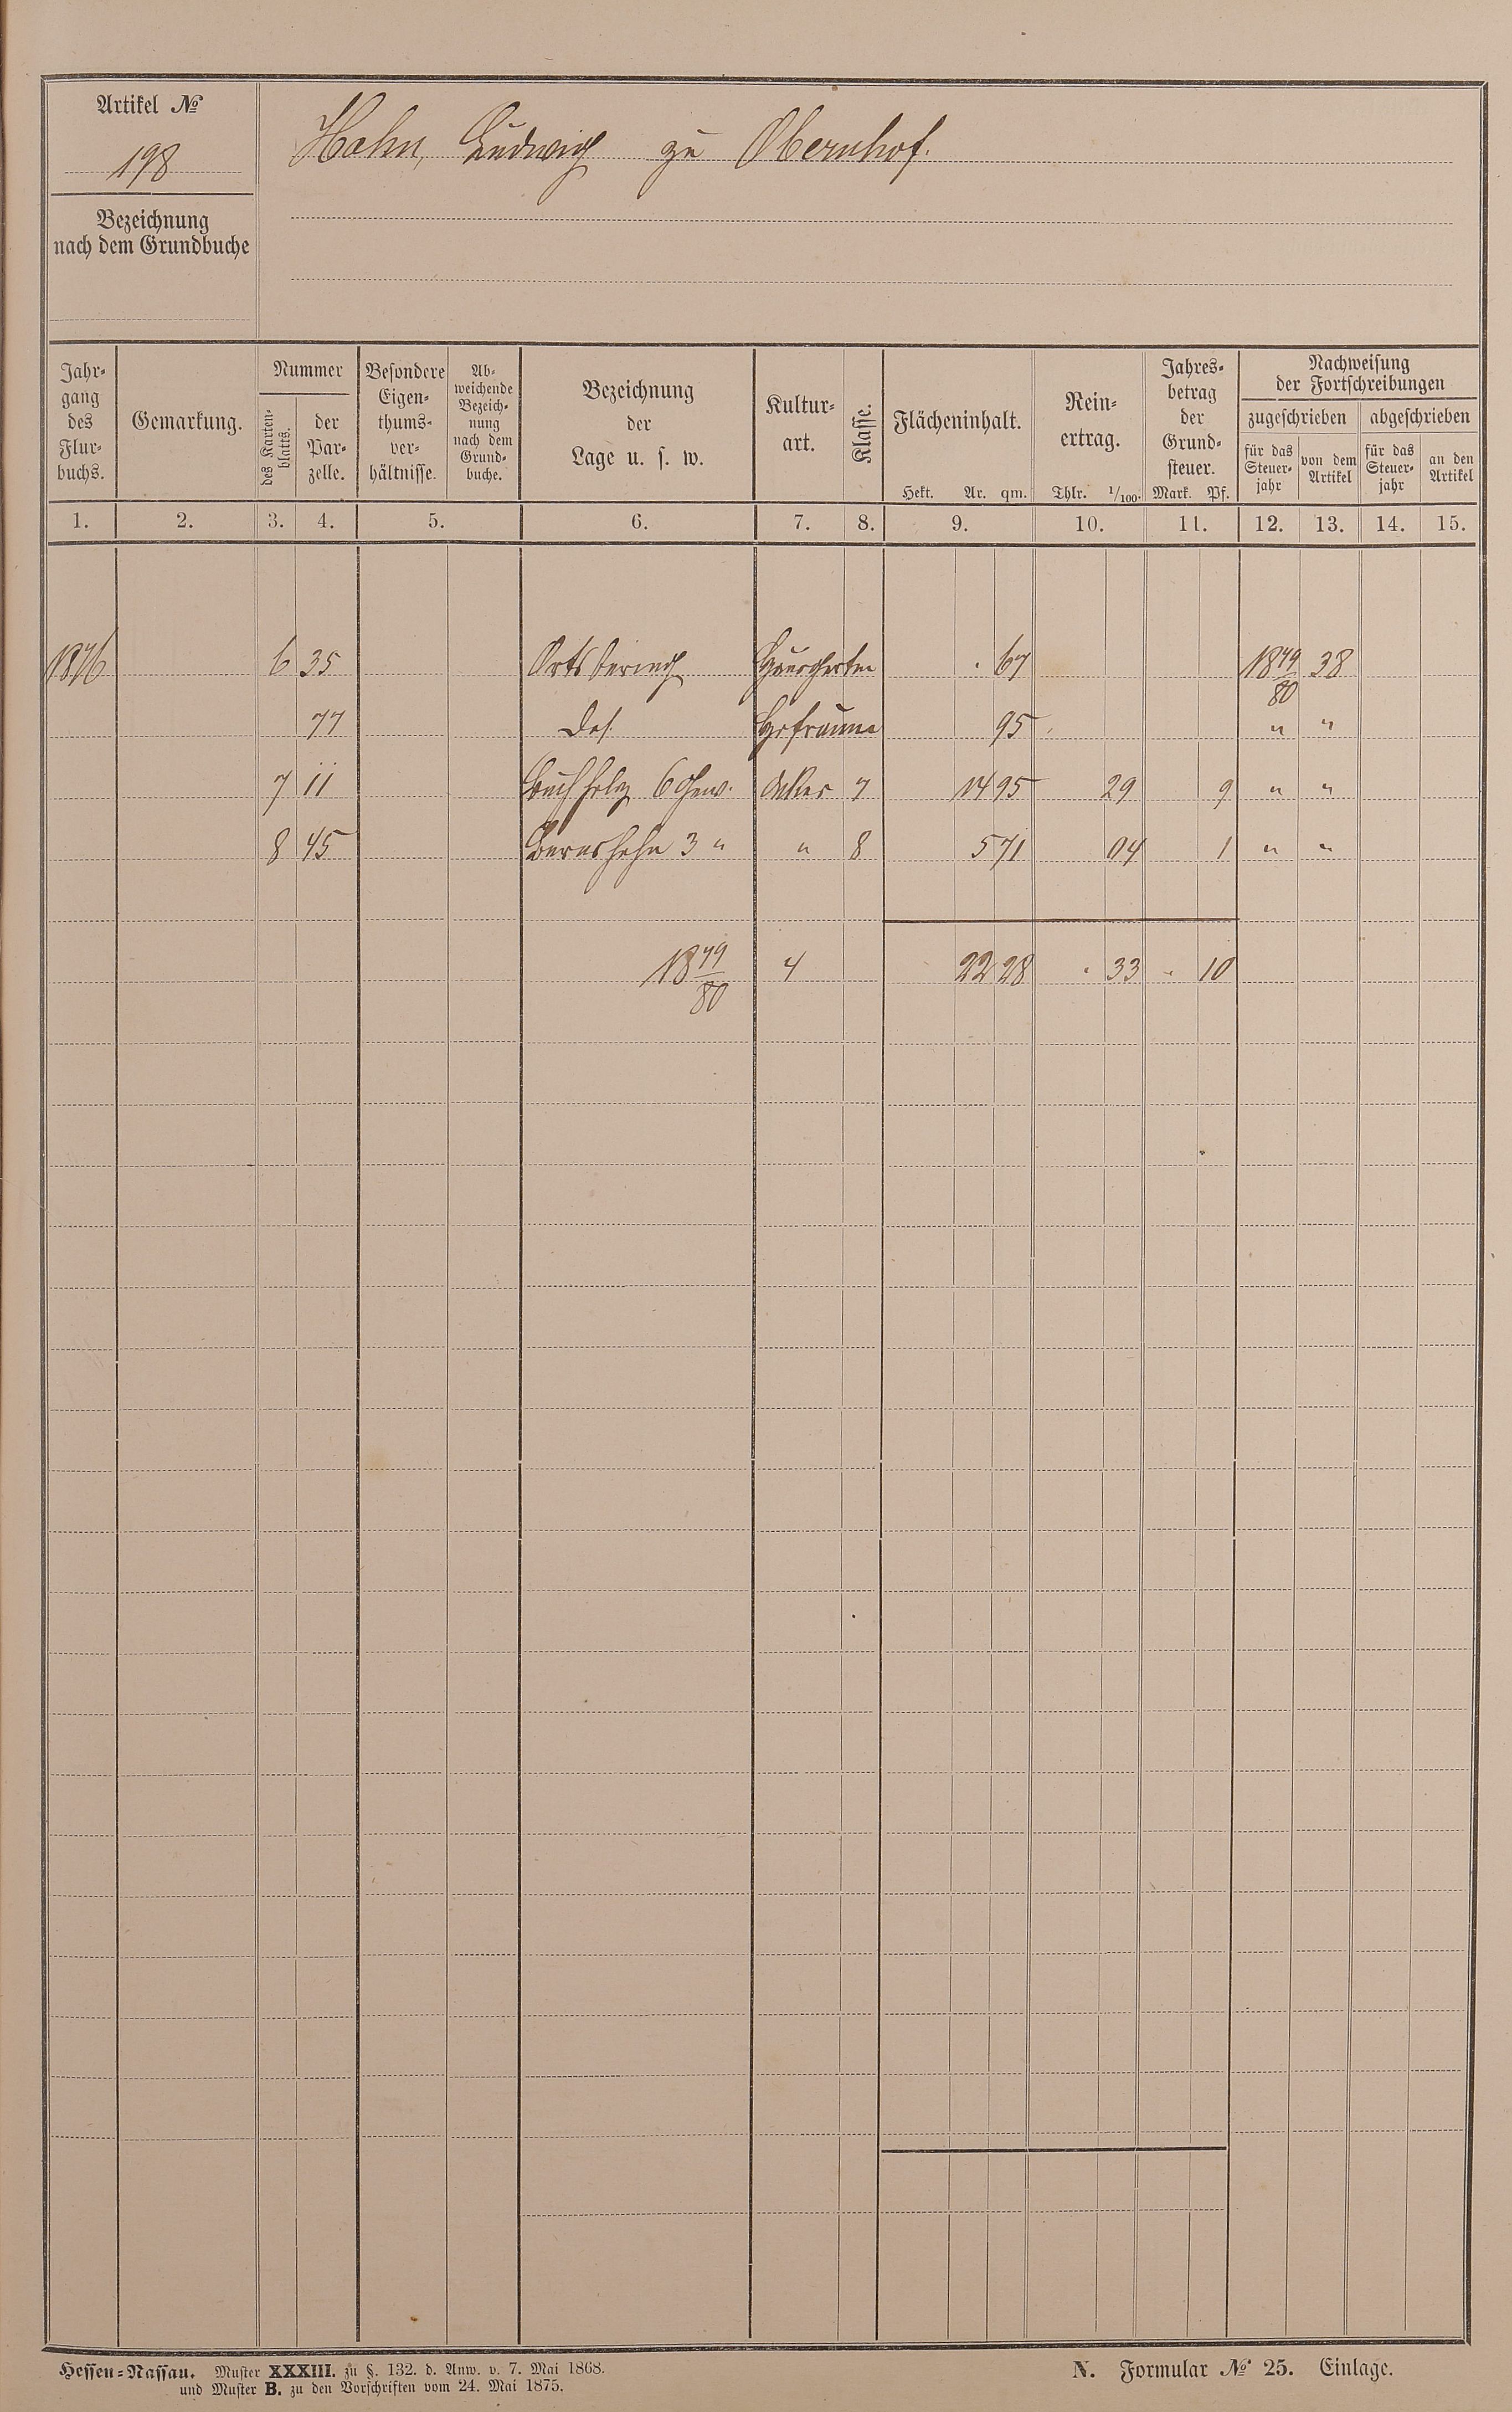 Artikel №
198
Hahn, Ludwig zu Obernhof.
Bezeichnung
nach dem Grundbuche
Jahr-
gang
des
Flur-
buchs.
Gemarkung.
Nummer
des Karten-
blatts.
der
Par-
zelle.
Besondere
Eigen-
thums-
ver-
hältnisse.
Ab-
weichende
Bezeich-
nung
nach dem
Grund-
buche.
Bezeichnung
der
Lage u. s. w.
Kultur-
art.
Klasse.
Flächeninhalt.
Hekt. Ar. qm.
Rein-
ertrag.
Thlr. 1/100.
Jahres-
betrag
der
Grund-
steuer.
Mark. Pf.
Nachweisung
der Fortschreibungen
zugeschrieben abgeschrieben
für das
Steuer-
jahr
von dem
Artikel
für das
Steuer-
jahr
an den
Artikel
1. 2. 3. 4. 5. 6. 7. 8. 9. 10. 11. 12. 13. 14. 15.
1876 6 35 Ortsbering Hausgarten . 67 1879/80 38
77 das. Hofraum 95 " "
7 11 Buchholz 6 Gew. Acker 7 14 95 29 9 " "
8 45 3 " " 8 5 71 04 1 " "
1879/80 4 22 28 . 33 . 10
Hessen-Nassau. Muster XXXIII. zu §. 132. d. Anw. v. 7. Mai 1868.
und Muster B. zu den Vorschriften vom 24. Mai 1875.
N. Formular № 25. Einlage.